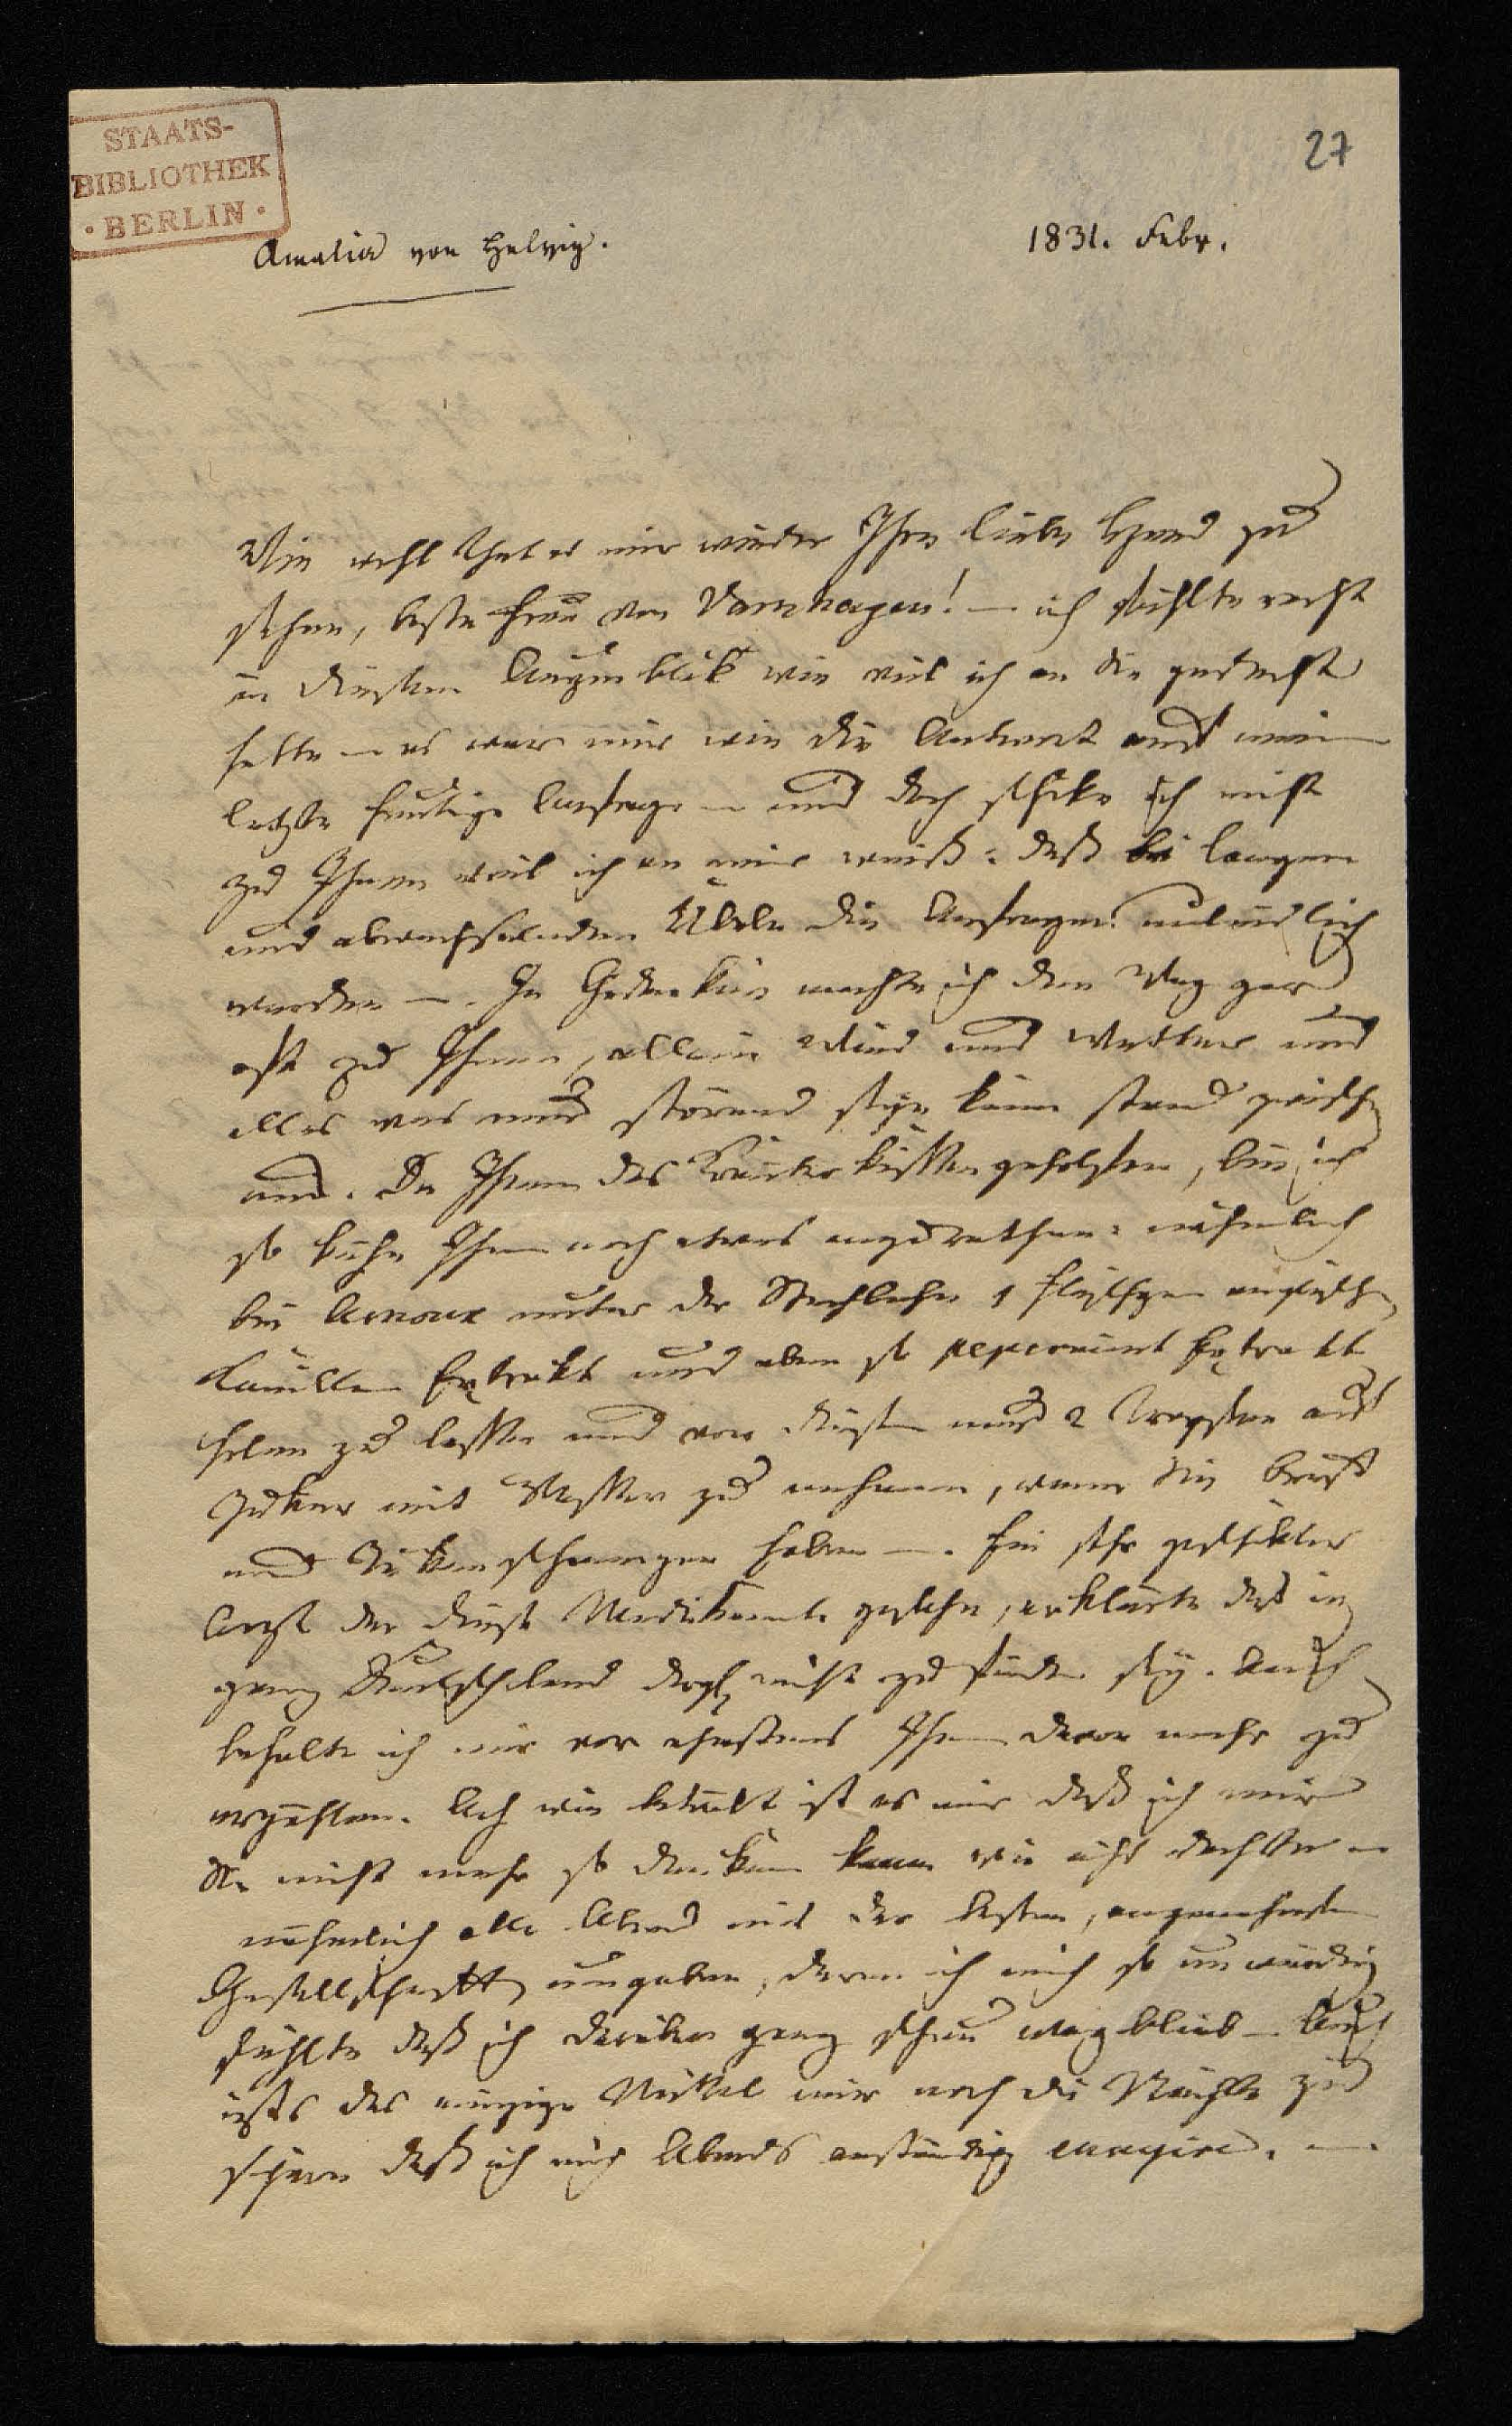 STAATS-
BIBLIOTHEK
· BERLIN ·
27
Amalia von Helvig.
1831. Febr.
Wie wohl that es mir wieder Ihre liebe Hand zu
sehen, beste Frau von Varnhagen! – ich fühlte recht
in diesem Augenblick wie viel ich an Sie gedacht
hatte – es war mir wie die Antwort auf meine
letzte heutige Anfrage – und doch schike ich nicht
zu Ihnen weil ich an mir weiß: daß bei langen
und abwechselnden Übeln die Anfragen
werden –. In Gedanken machte ich den Weg gar
oft zu Ihnen, allein Wind und Wetter und
alles was nur störend seyn kann stand zwischen
uns. Da Ihnen das Kräuterkissen geholfen, bin ich
so kühn Ihnen noch etwas anzurathen: nähmlich
bei Arnoux unter der Stechbahn 1 Fläschgen englischen
Kamillen Extrakt und eben so Pepermint Extrakt
holen zu lassen und von diesem nur 2 Tropfen auf
Zuker mit Wasser zu nehmen, wenn Sie Brust
und Rükenschmerzen haben –. Ein sehr geschikter
Arzt der diese Medikamente gesehn, erklärte daß in
ganz Deutschland dergl nicht zu finden sey. Auch
behalte ich mir vor ehestens Ihnen davon mehr zu
erzählen. Ach wie betrübt ist es mir daß ich mir
Sie nicht mehr so denken kann wie ichs dachte –
nähmlich alle Abend mit der besten, angenehmsten
Gesellschaft umgeben, deren ich mich so unwürdig
fühlte daß ich darüber ganz scheu wegblieb – Auch
ists das einzige Mittel mir noch die Nächte zu
daß ich mich Abends anständig ennuyire. –